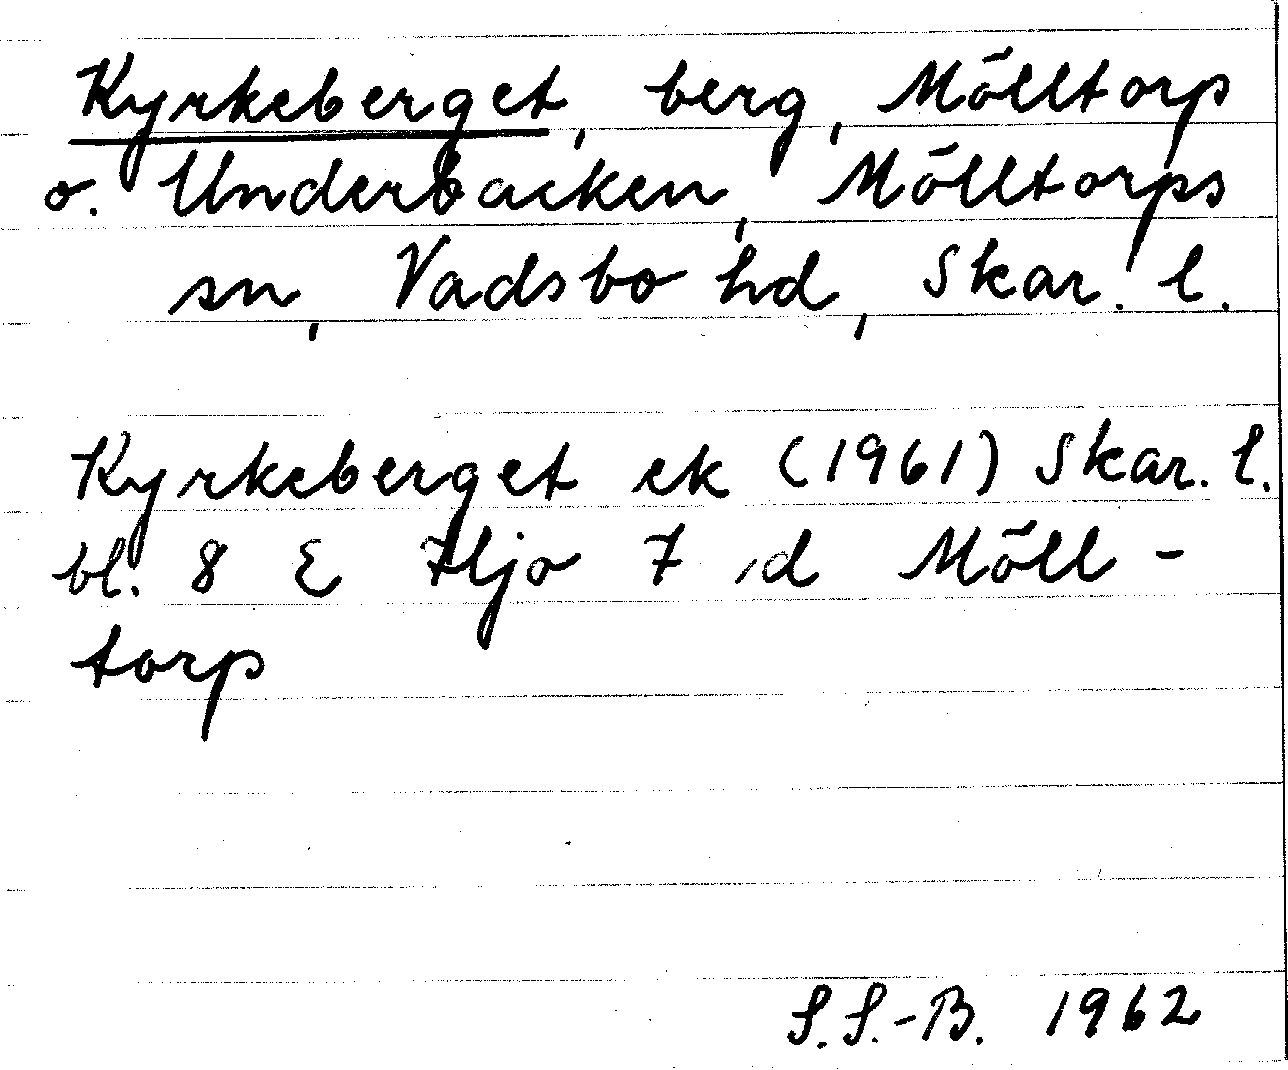 Kyrkeberget, berg, Mölltorp
o. Underbacken, Mölltorps
sn, Vadsbo hd, Skar. l.
Kyrkeberget ek (1961) Skar. l.
bl. 8 E Hjo 7 d Möll-
torp
S.S.-B. 1962